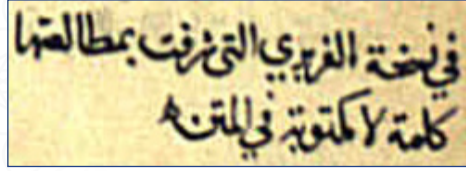 في نسخة الفربري التي شرفت بمطالعتها
كلمة لا مكتوبة في المتن ه